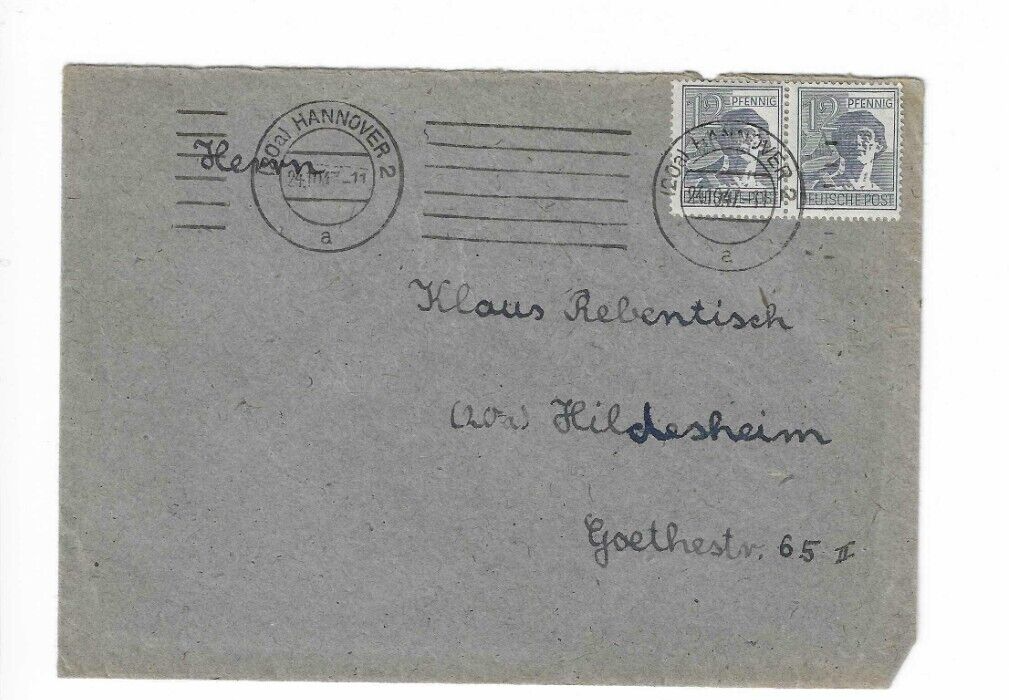 (20a) HANNOVER 2
24.10.47.-11
a
(20a) HANNOVER 2
24.10.47.
a
12 PFENNIG
DEUTSCHE POST
12 PFENNIG
DEUTSCHE POST
Herrn
Klaus Rebentisch
(20a) Hildesheim
Goethestr. 65 II